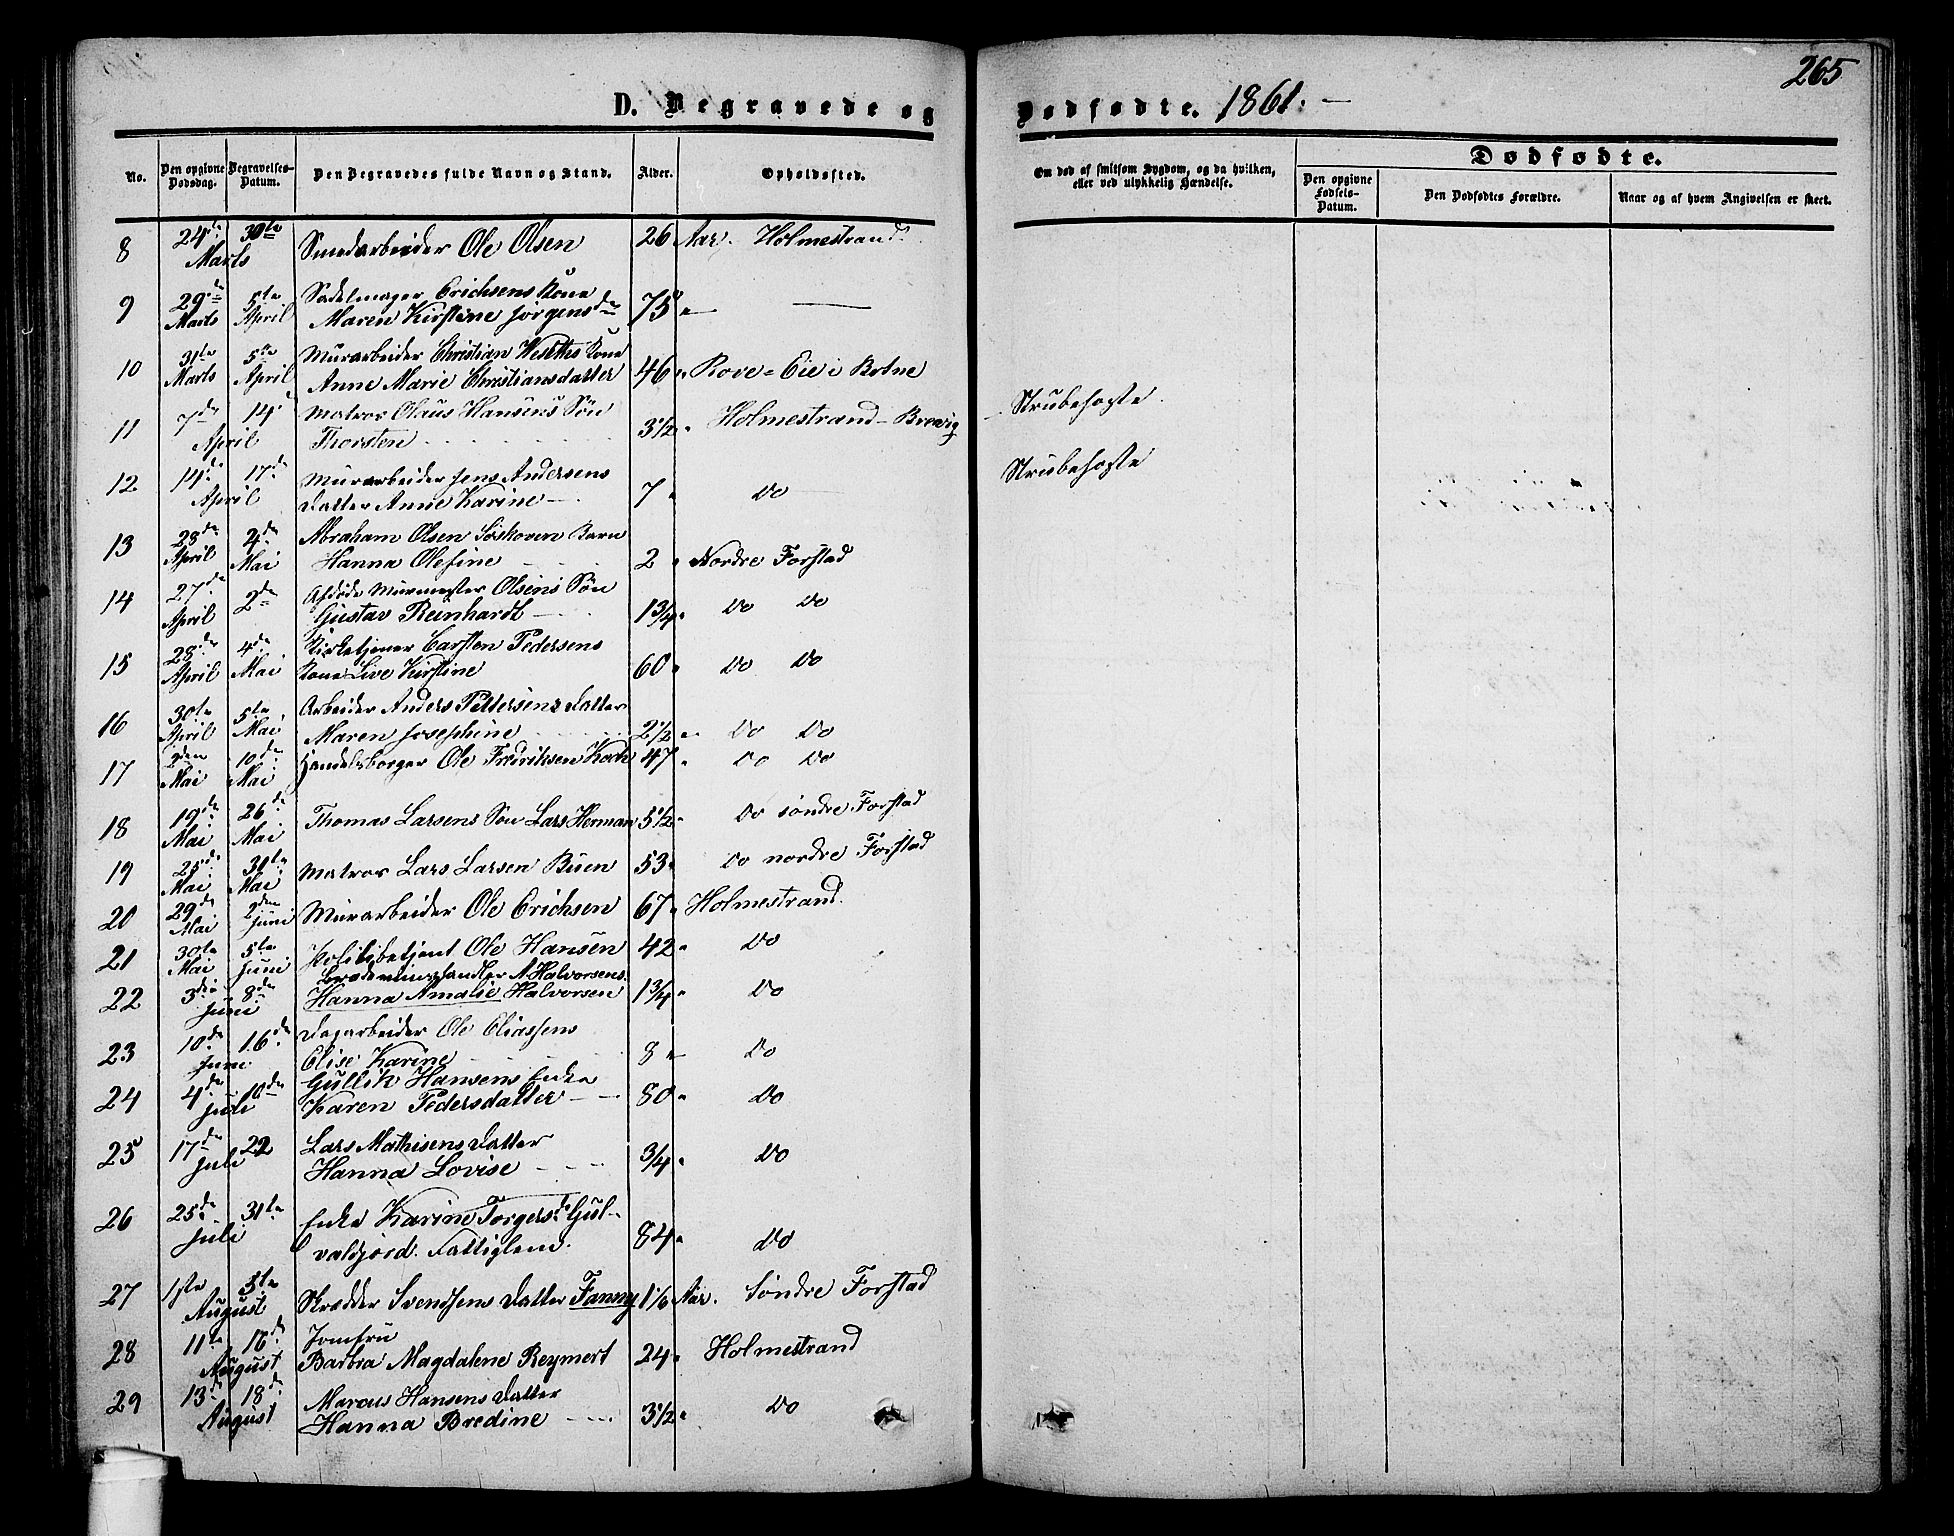 265
D. Begravede og Dødfødte. 1861. —
No.
Den opgivne Dødsdag.
Begravelses-Datum.
Den Begravedes fulde Navn og Stand.
Alder.
Opholdssted.
Om død af smitsom Sygdom, og da hvilken, eller ved ulykkelig Hændelse.
Dødfødte.
Den opgivne Fødsels-Datum.
Den Dødfødtes Forældre.
Naar og af hvem Angivelsen er skeet.
8 24de 30te Smedarbeider Ole Olsen 26 Aar. Holmestrand.
Marts
9 29de 5te Sadelmager Erichsens Kone
Marts April Maren Kirstine Jørgensdr 75 " — —
10 31te 5te Murarbeider Christian Kone
Marts April Anne Marie Christiansdatter 46 " Rove-Eie i Botne
11 7de 14de Matros Olaus Hansens Søn Holmestrand - Brevig Strubehoste
April Thorsten 3½ "
12 14de 17de Murarbeider Jens Andersens Strubehoste
April Datter Anne Karine — 7 " Do
13 28de 2den Abraham Olsen Barn
April Mai Hanna Olefine 2 " Nordre Forstad
14 27de 2den Afdøde Murmester Olsens Søn
April Gustav Reinhardt — 1¾ " Do Do
15 28de 4de Kirketjener Carsten Pedersens
April Mai Kone Live Kirstine 60 " Do Do
16 30te 5te Arbeider Anders Pettersens Datter
April Mai Maren Josephine 2½ " Do Do
17 2den 10de Handelsborger Ole Fredriksen Koch 47 " Do Do
Mai Mai
18 19de 26de Thomas Larsens Søn Lars Herman 5½ " Do søndre Forstad
Mai Mai
19 25de 31te Matros Lars Larsen Buen 53 " Do nordre Forstad
Mai Mai
20 29de 2den Murarbeider Ole Erichsen 67 " Holmestrand.
Mai Juni
21 30te 5te Politibetjent Ole Hansen 42 " Do
Mai Juni
22 3die 8de Brødeviinshandler A. Halvorsens
Juni Hanna Amalie Halvorsen 1¾ " Do
23 10de 16de Dagarbeider Ole Eliassens
Juni Elise Karine 8 " Do
24 4de 10de Gullik Hansens Enke
Juli Karen Pedersdatter — 80 " Do
25 17de 22 Lars Mathisens Datter
Juli Hanna Lovise — ¾ " Do
26 25de 31te Enke Karine Torgersdr Gul-
Juli valdjord. Fattiglem. 84 " Do
27 1ste 5te Skrædder Svendsens Datter Fanny 1⅙ Aar. Søndre Forstad
August
28 11te 16de Jomfru
August Barbra Magdalene Reymert 24 " Holmestrand
29 13de 18de Marcus Hansens Datter
August Hanna Bredine 3½ " Do